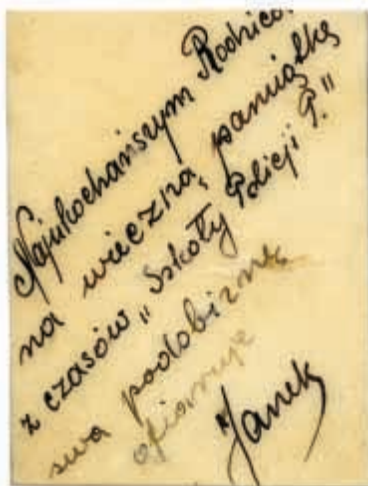 Najukochańszym Rodzico
na wieczną pamiątkę
z czasów „Szkoły Policji P."
swą podobiznę
ofiaruje
Janek